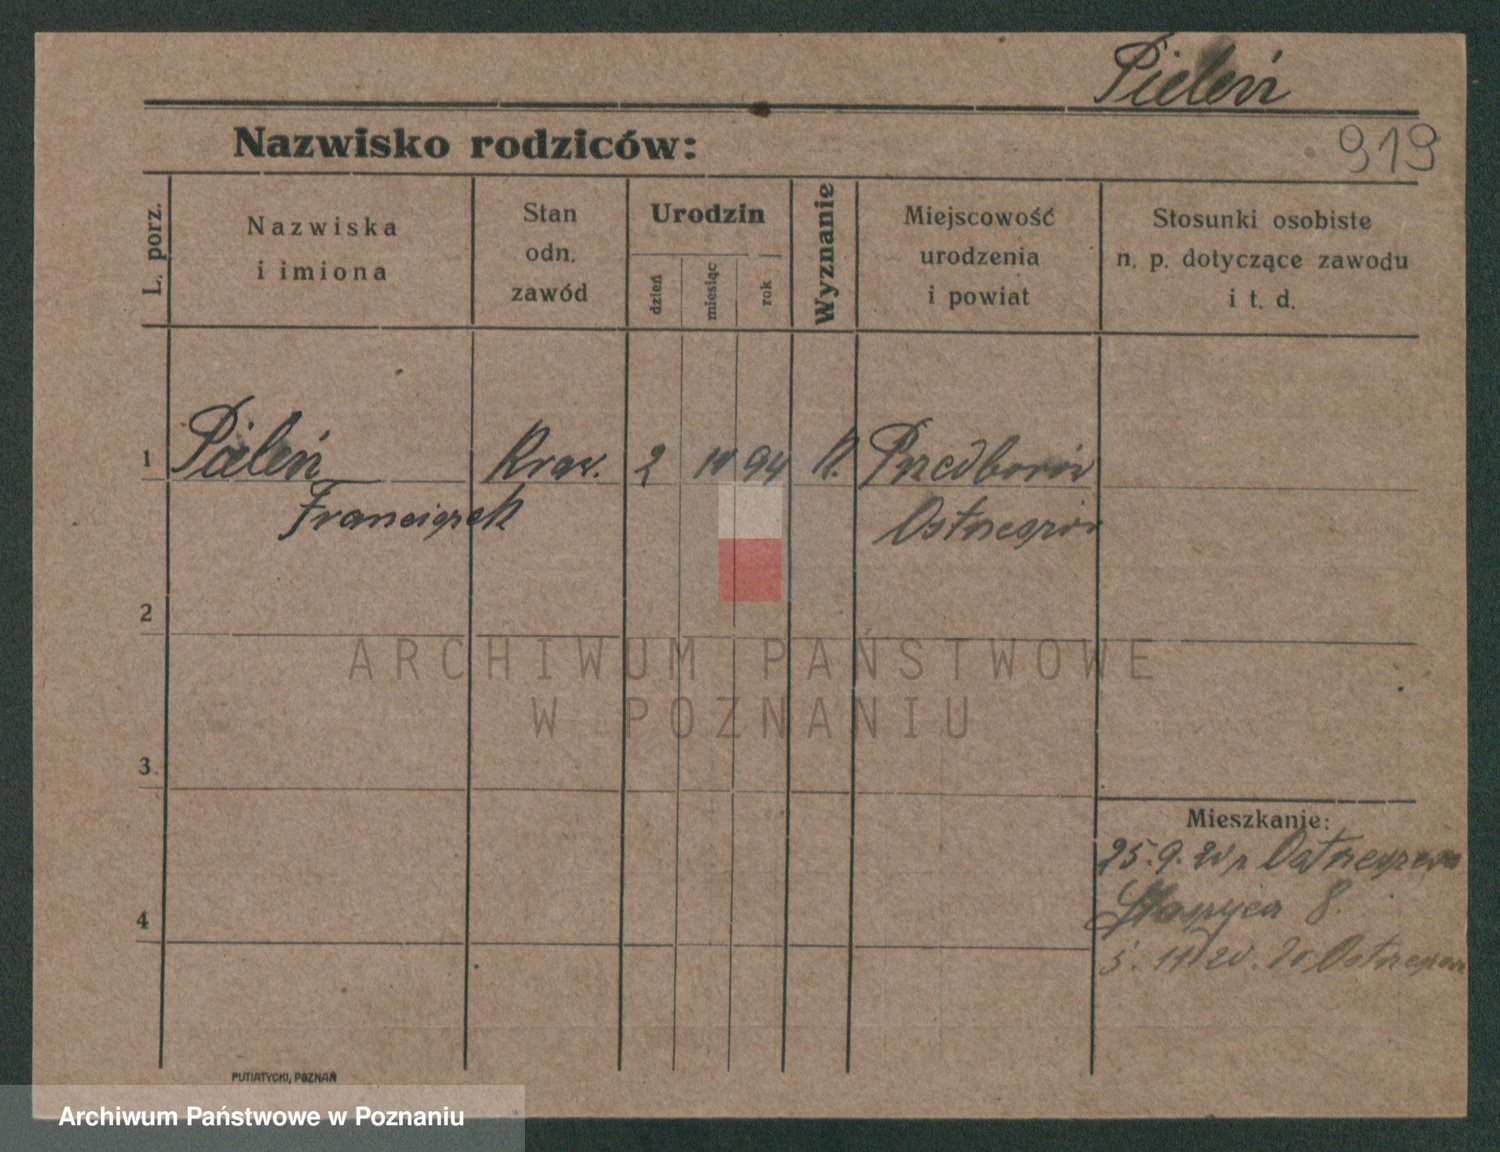 Pieleń
Nazwisko rodziców:
919
L. porz.
Nazwiska
i imiona
Stan
odn.
zawód
Urodzin
dzień
miesiąc
rok
Wyznanie
Miejscowość
urodzenia
i powiat
Stosunki osobiste
n. p. dotyczące zawodu
i t. d.
1 Pieleń Kraw. 2 10 94 K. Przedborów
Franciszek Ostrzeszów
2
ARCHIWUM PAŃSTWOWE
W POZNANIU
3
Mieszkanie:
25. 9. 20 z Ostrzeszowa
8.
4
5. 11 20. do Ostrzeszowa
PUTIATYCKI, POZNAŃ
Archiwum Państwowe w Poznaniu